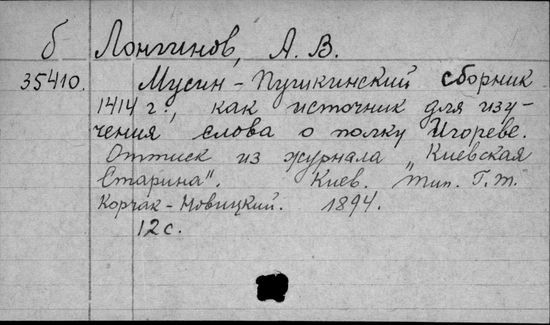 б Лонгинов, А. В.
35410. Мусин-Пушкинский сборник
1414 г., как источник для изу-
чения слова о полку Игореве.
Оттиск из журнала „Киевская
Старина". Киев. Тип. Г. Т.
Корчак-Новицкий. 1894.
12 с.